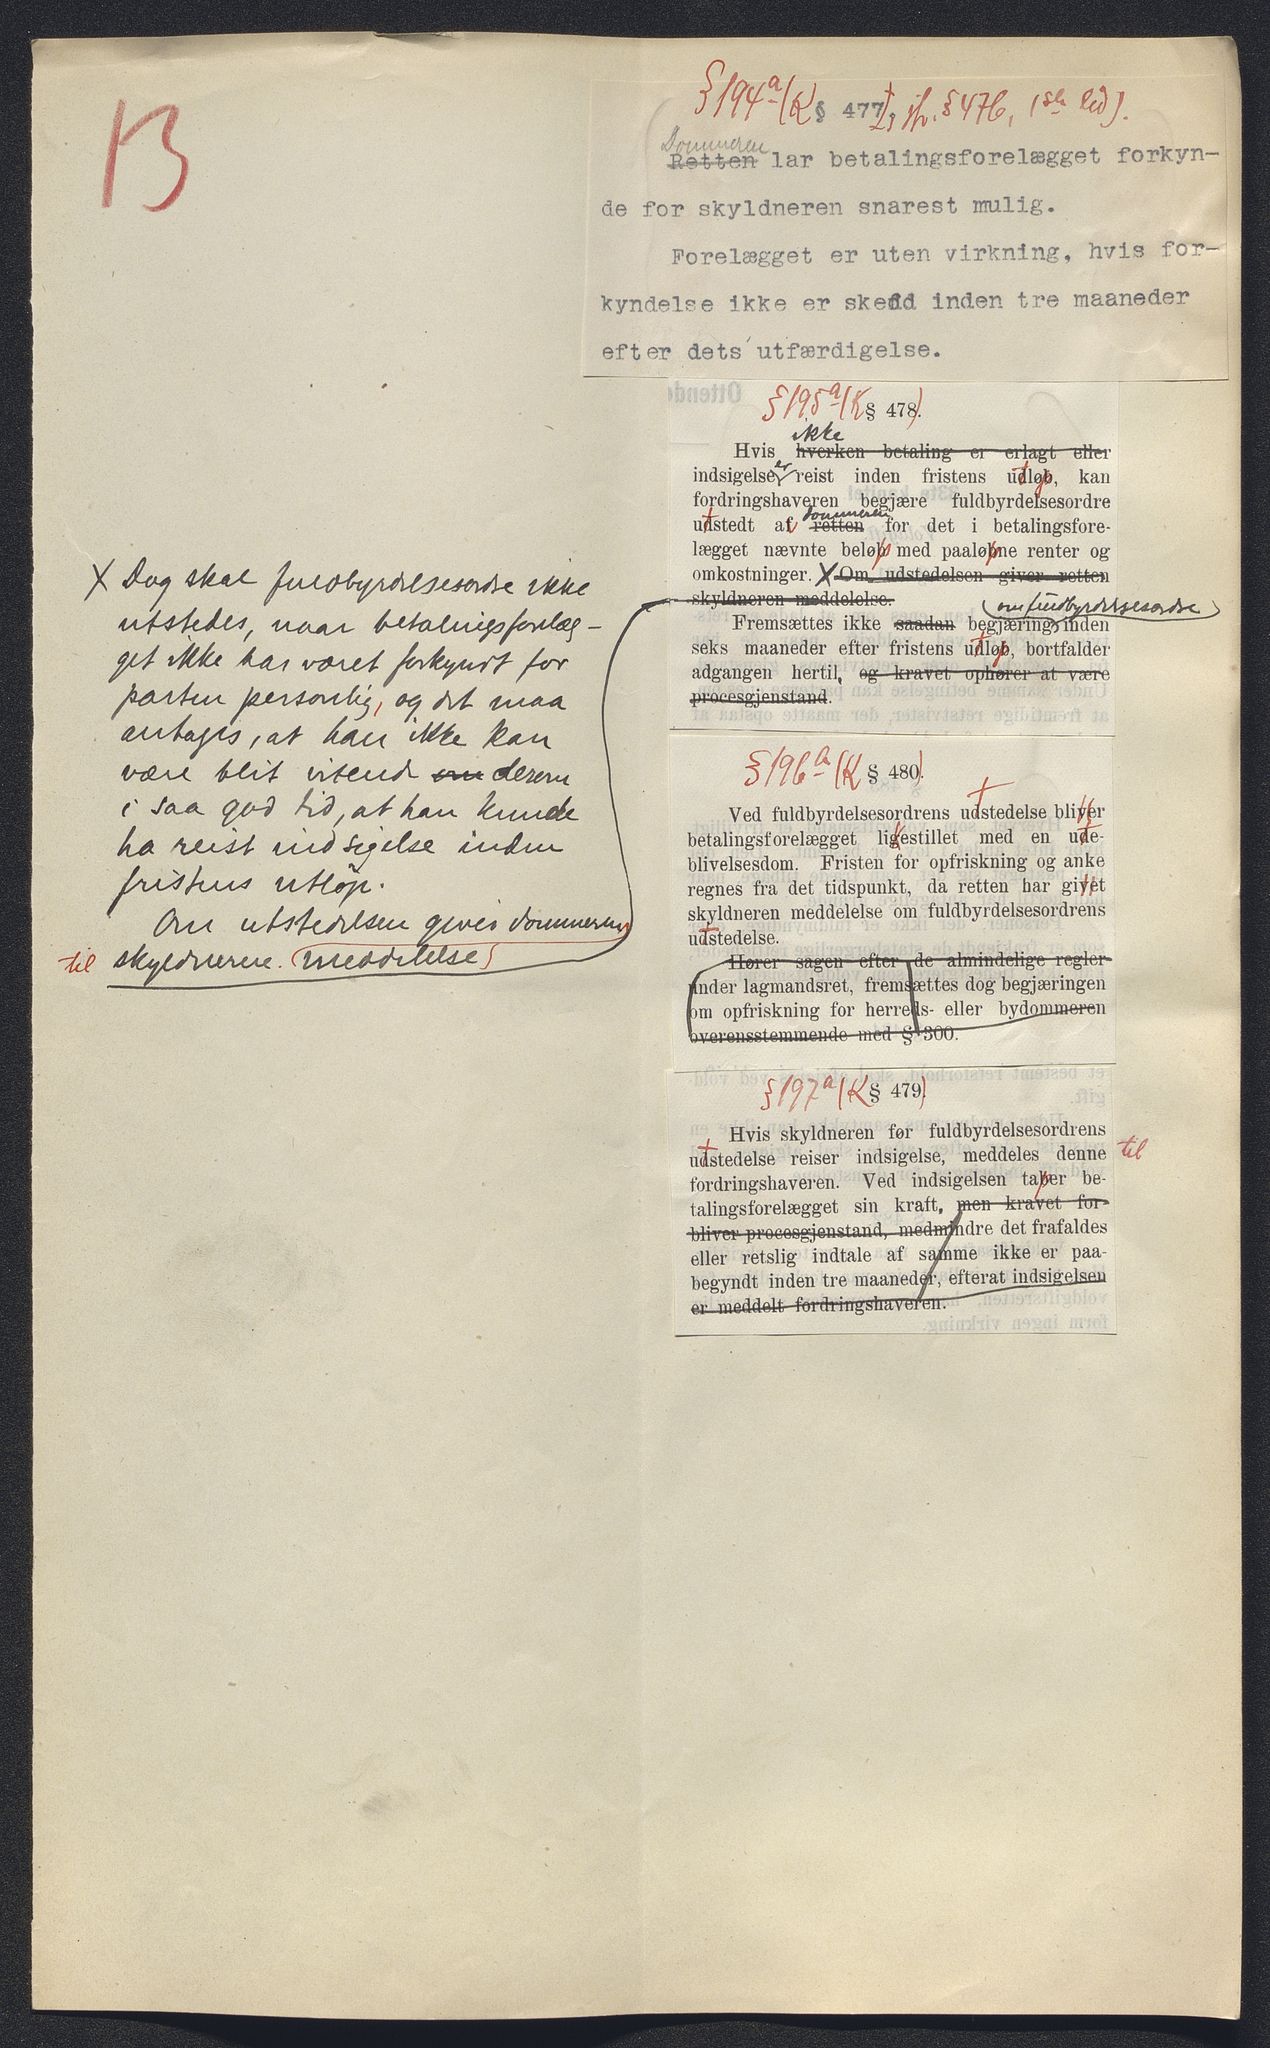 13
§ 194a (K § 477, jfr. § 476, 1ste led).
Dommeren
Retten lar betalingsforelægget forkyn-
de for skyldneren snarest mulig.
Forelægget er uten virkning, hvis for-
kyndelse ikke er skedd inden tre maaneder
efter dets utfærdigelse.
§ 195a (K § 478.)
ikke
Hvis hverken betaling er erlagt eller
indsigelse er reist inden fristens udløb, kan
fordringshaveren begjære fuldbyrdelsesordre
dommeren
udstedt af retten for det i betalingsfore-
lægget nævnte beløb med paaløbne renter og
omkostninger. X Om udstedelsen giver retten
skyldneren meddelelse.
om fuldbyrdelsesordre
Fremsættes ikke saadan begjæring inden
seks maaneder efter fristens udløb, bortfalder
adgangen hertil, og kravet ophører at være
procesgjenstand.
X Dog skal fuldbyrdelsesordre ikke
utstedes, naar betalingsforelæg-
get ikke har været forkyndt for
parten personlig, og det maa
antages, at han ikke kan
være blit vitende om derom
i saa god tid, at han kunde
ha reist indsigelse inden
fristens utløp.
Om utstedelsen gives dommeren
til skyldneren. meddelelse
§ 196a (K § 480).
Ved fuldbyrdelsesordrens udstedelse bliver
betalingsforelægget ligestillet med en ude-
blivelsesdom. Fristen for opfriskning og anke
regnes fra det tidspunkt, da retten har givet
skyldneren meddelelse om fuldbyrdelsesordrens
udstedelse.
Hører sagen efter de almindelige regler
under lagmandsret, fremsættes dog begjæringen
om opfriskning for herreds- eller bydommeren
overensstemmende med § 300.
§ 197a (K § 479).
Hvis skyldneren før fuldbyrdelsesordrens
udstedelse reiser indsigelse, meddeles denne til
fordringshaveren. Ved indsigelsen taber be-
talingsforelægget sin kraft, men kravet for-
bliver procesgjenstand, medmindre det frafaldes
eller retslig indtale af samme ikke er paa-
begyndt inden tre maaneder, efterat indsigelsen
er meddelt fordringshaveren.